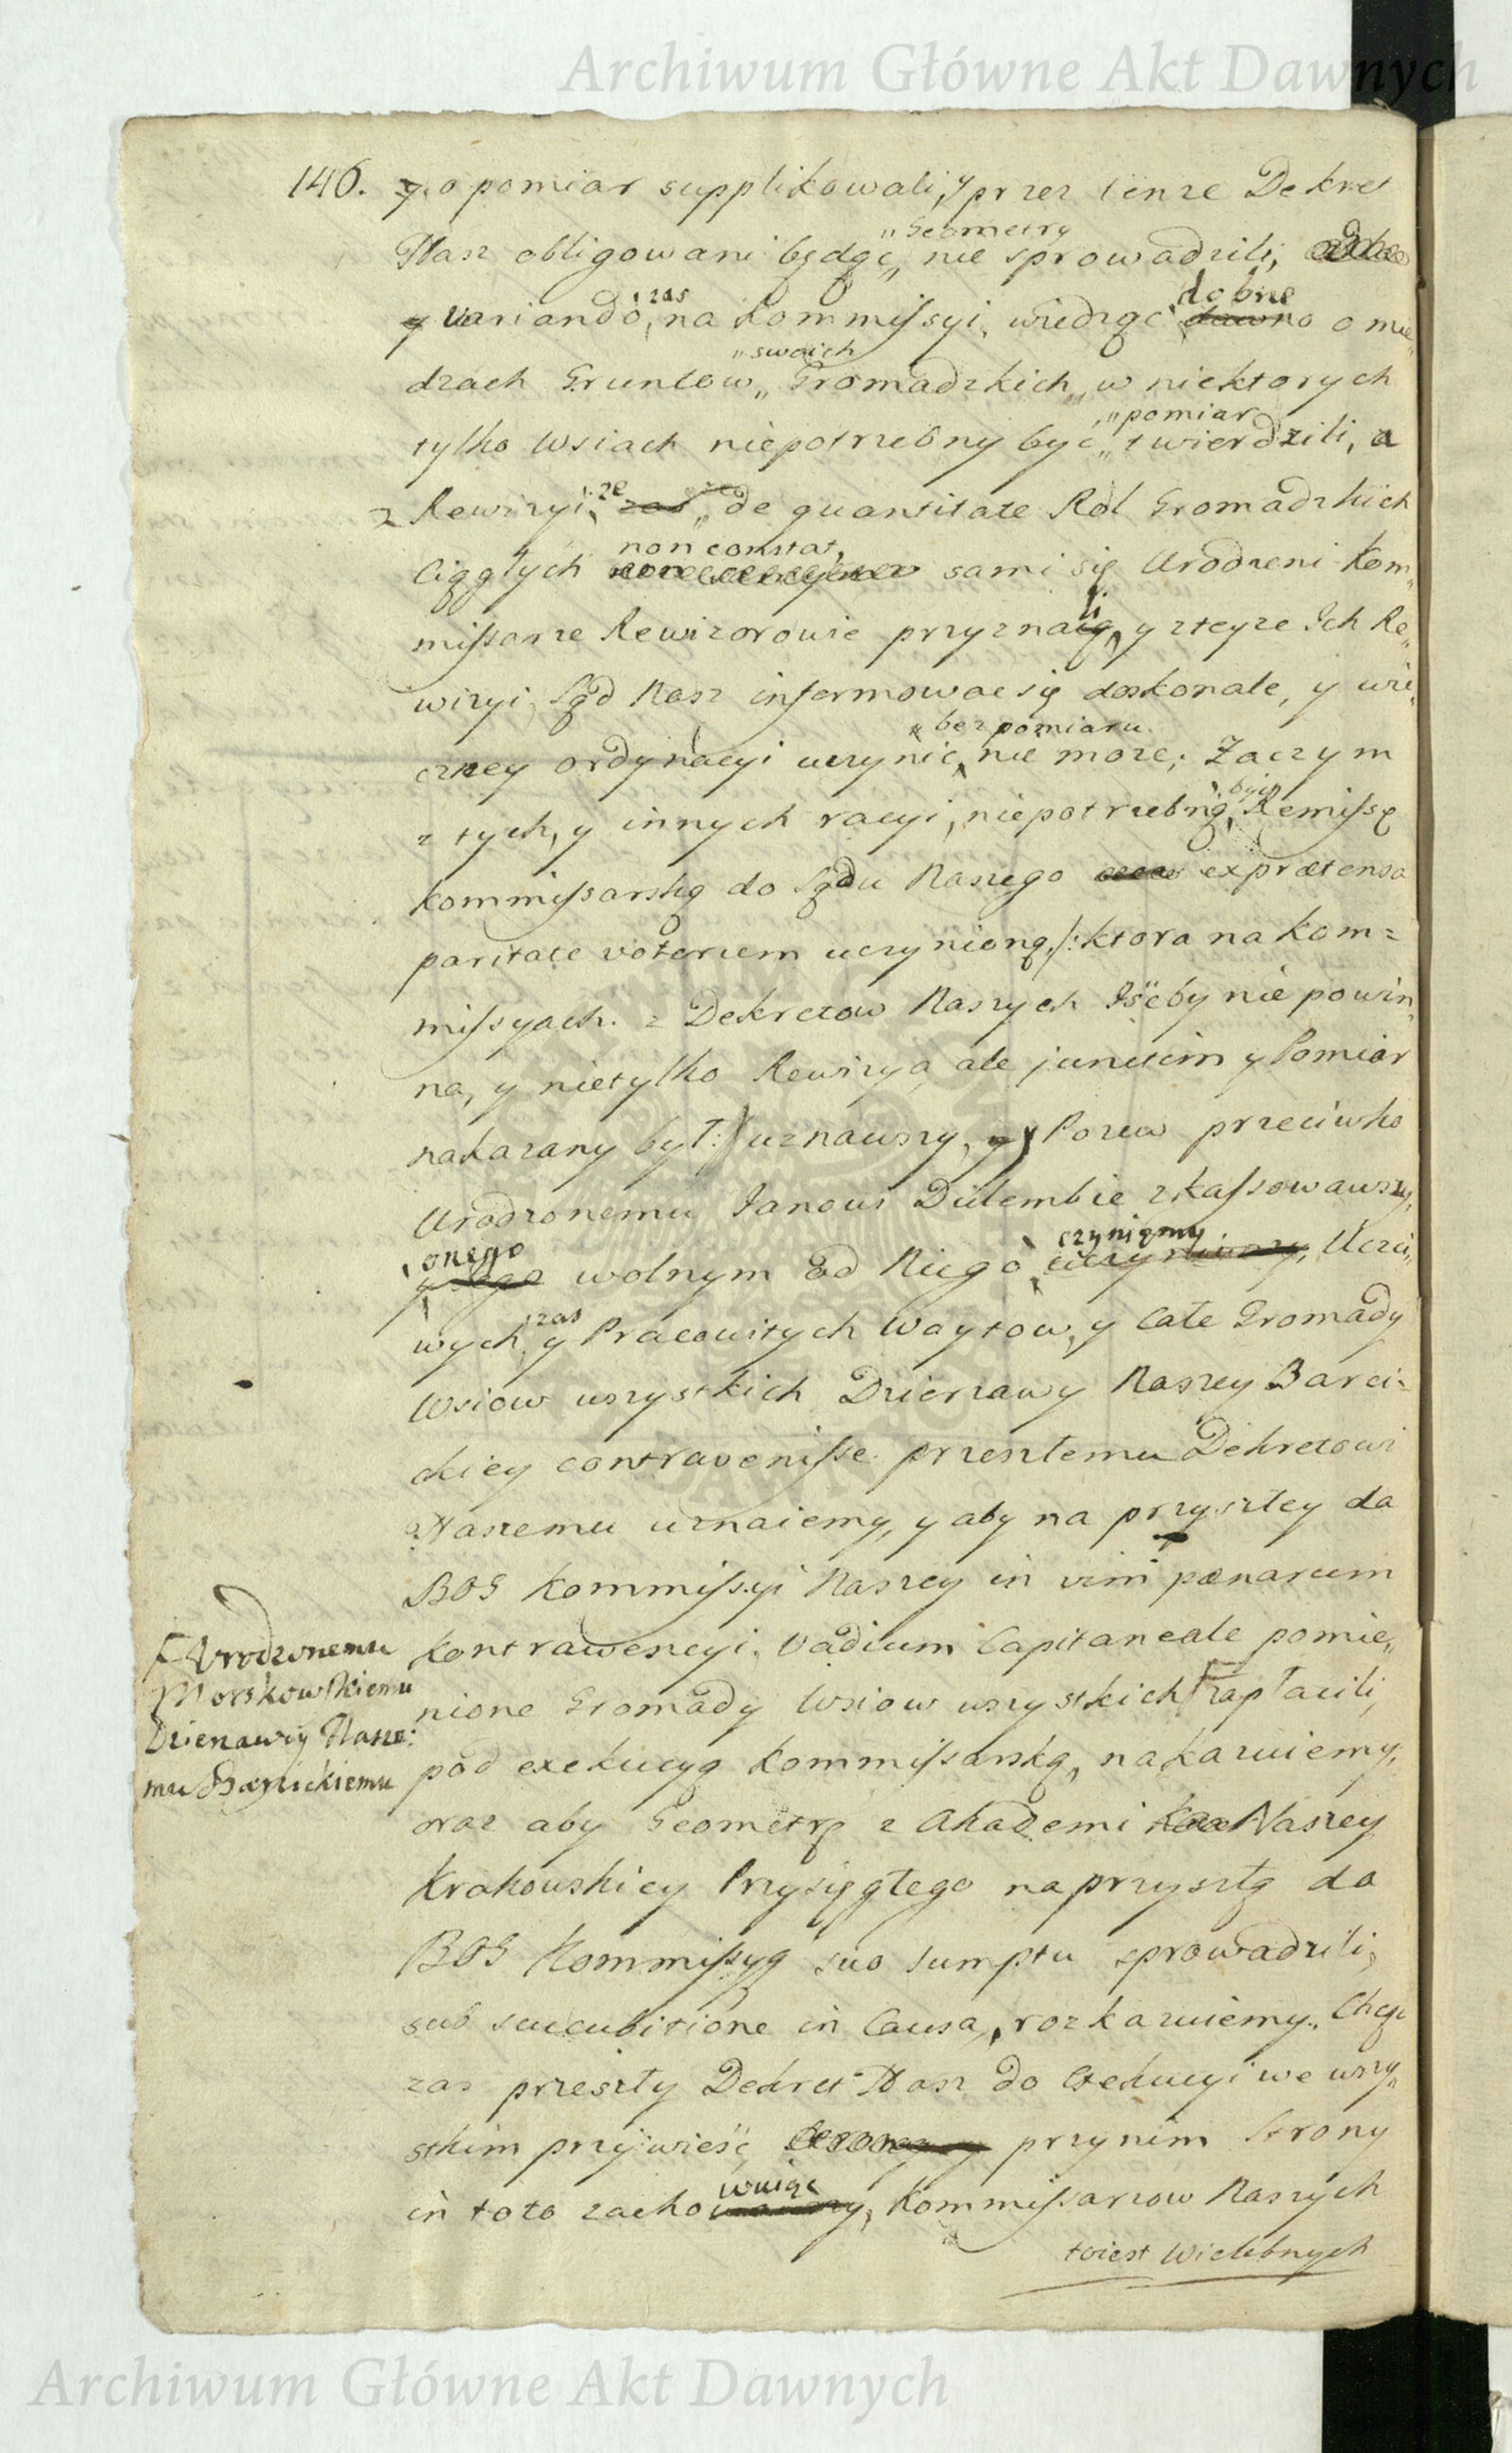 Archiwum Główne Akt Dawnych
146. y o pomiar supplikowali, y przez tenze Dekret
Nasz obligowani będąc, "Geometry nie sprowadzili,
y variando, zas na Kommissyi, wiedząc dobrze dawno o mie„
dzach Gruntow „swoich Gromadzkich, w niektorych
tylko Wsiach niepotrzebny być „pomiar twierdzili, a
z Rewizyi, ze zas de quantitate Rol Gromadzkich
Ciągłych non constat, sami się Urodzeni Kom„
missarze Rewizorowie przyznali, y zteyze Ich Re„
wizyi Sąd Nasz informowac się doskonale, y wie„
czney ordynacyi uczynić, „bez pomiaru nie moze; Zaczym
z tych, y innych racyi, niepotrzebną, być Remissę
Kommissarską do Sądu Naszego ex prætensa
paritate votorum uczynioną, /: ktora na Kom=
missyach z Dekretow Naszych Iśćby nie powin„
na, y nietylko Rewizya ale junctim y Pomiar
nakazany był :/ uznawszy, y Pozew przeciwko
Urodzonemu Janowi Dulembie zkassowawszy,
onego wolnym od Niego czyniemy uczyniwszy, Uczci„
wych, zas y Pracowitych Waytow, y Całe Gromady
Wsiow wszystkich Dzierzawy Naszey Barci=
ckiey contravenisse przeszłemu Dekretowi
Naszemu uznaiemy, y aby na przyszłey da
BOG Kommissyi Naszey in vim pœnarum
Kontrawencyi, Vadium Capitaneale pomie„
nione Gromady Wsiow wszystkich zapłacili,
pod exekucyą Kommissarską, nakazuiemy,
oraz aby Geometrę z Akademi Naszey
Krakowskiey Przysięgłego na przyszłą da
BOG Kommissyą suo sumptu sprowadzili,
sub succubitione in Causa, rozkazuiemy. Chcąc
zas przeszły Dekret Nasz do Exekucyi we wszy„
stkim przywieść, przy nim Strony
in toto zachowuiąc, Kommissarzow Naszych
toiest Wielebnych
Urodzonemu
Morskowskiemu
Dzierzawcy Nasze:
mu Barcickiemu
Archiwum Główne Akt Dawnych